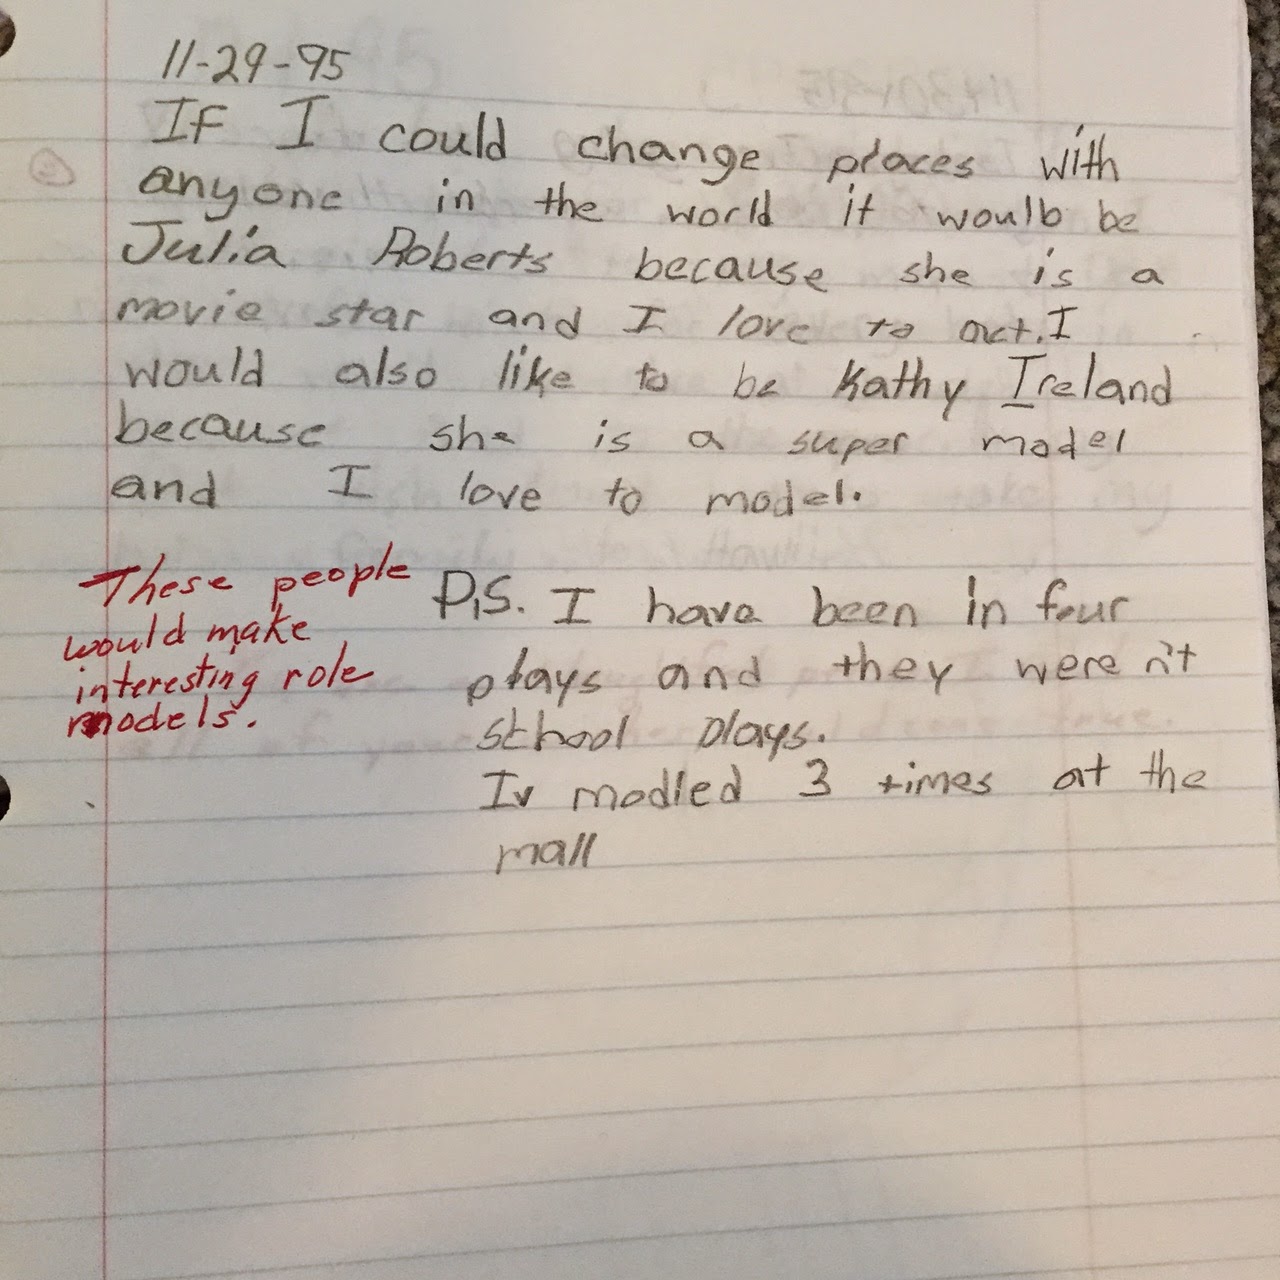 11-29-95
If I could change places with
anyone in the world it woulb be
Julia Roberts because she is a
movie star and I love to act. I
would also like to be Kathy Ireland
because she is a super model
and I love to model.
These people
would make
interesting role
models.
P.S. I have been in four
plays and they weren't
school plays.
Iv modled 3 times at the
mall